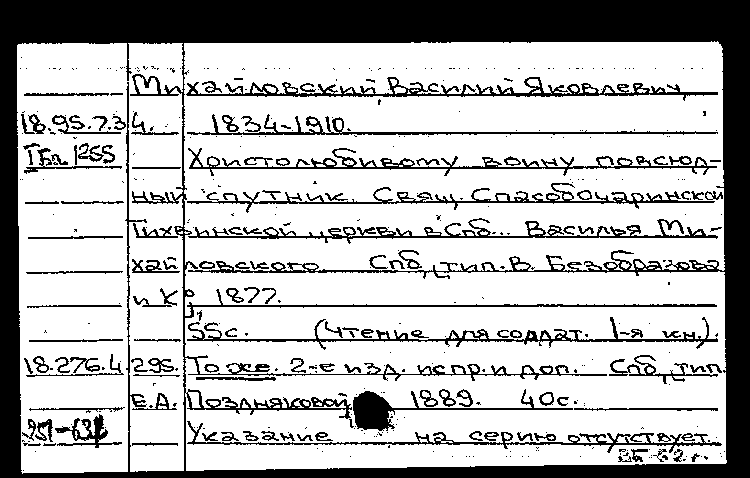 Михайловский, Василий Яковлевич,
18.95.7.34. 1834-1910.
I Бл 1255 Христолюбивому воину повсюд-
ный спутник. Свящ. Спасобочаринской
Тихвинской церкви в Спб... Василья Ми-
хайловского. Спб, тип. В. Безобразова
и Ко, 1877.
55с. (Чтение для солдат. 1-я кн.).
18.276.4.295. То же. 2-е изд. испр. и доп. Спб, тип.
Е.А. Поздняковой, 1889. 40с.
Указание на серию отсутствует.
ВБ-62г.